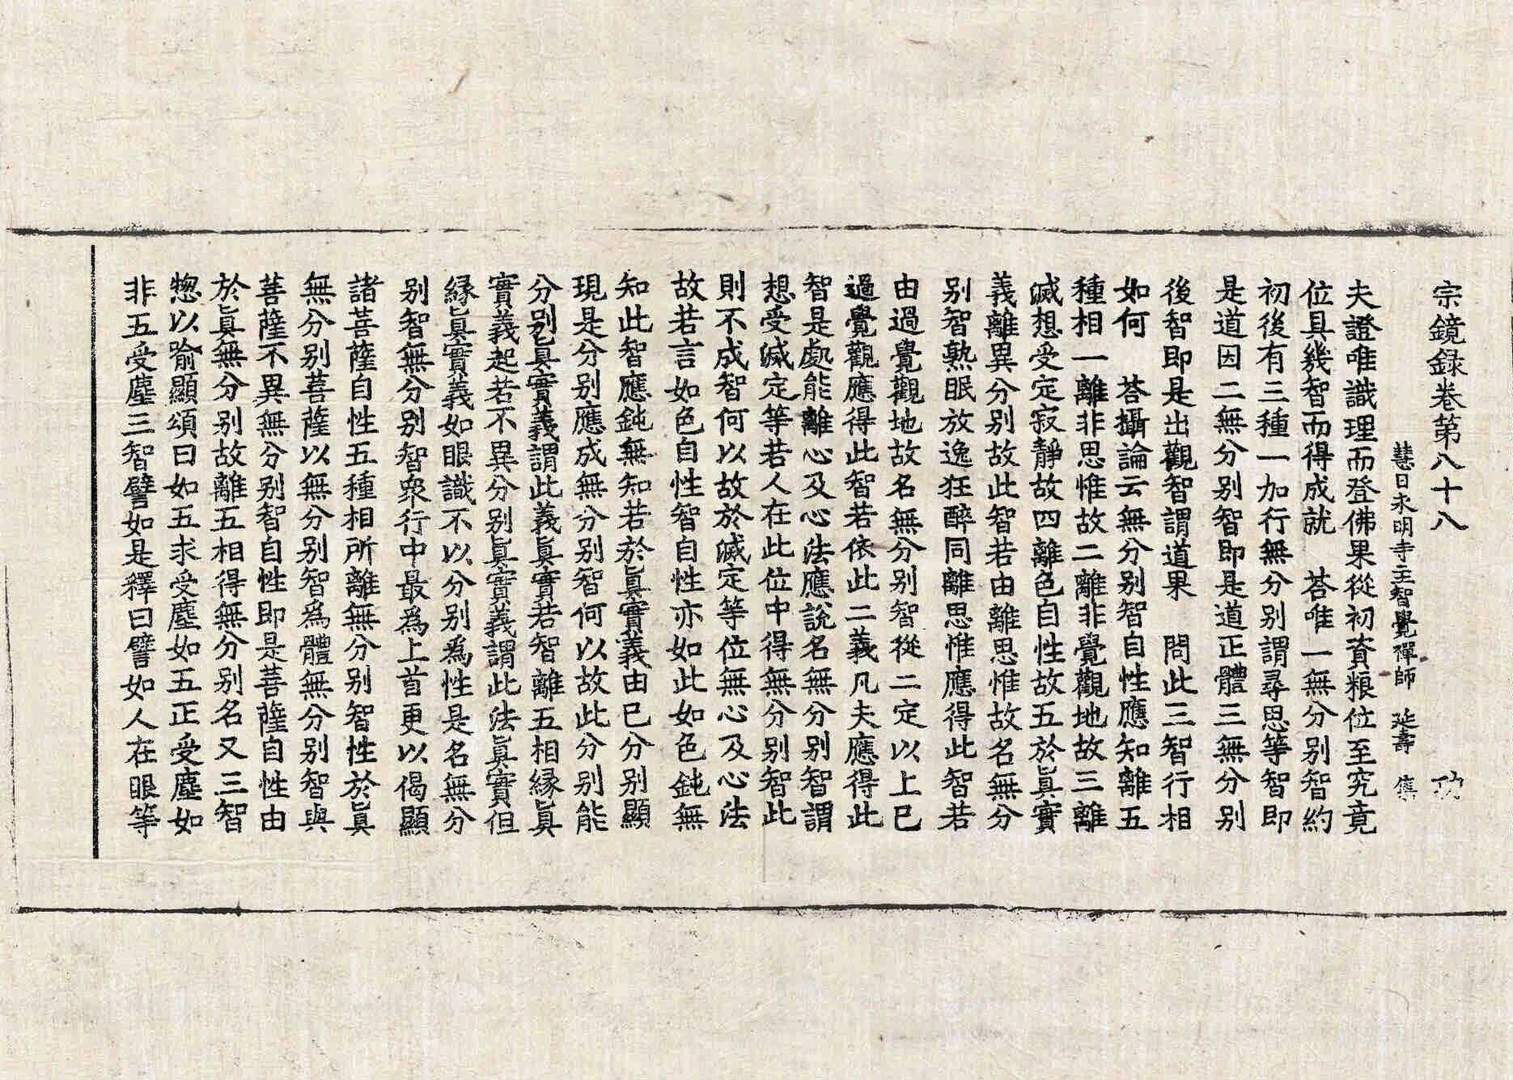 宗鏡錄卷第八十八
慧日永明寺主智覺禪師 延壽 集
夫證唯識理而登佛果從初資粮位至究竟
位具幾智而得成就 荅唯一無分別智約
初後有三種一加行無分別謂尋思等智即
是道因二無分別智即是道正體三無分別
後智即是出觀智謂道果 問此三智行相
如何 荅攝論云無分別智自性應知離五
種相一離非思惟故二離非覺觀地故三離
滅想受定寂靜故四離色自性故五於真實
義離異分別故此智若由離思惟故名無分
別智熟眠放逸狂醉同離思惟應得此智若
由過覺觀地故名無分別智從二定以上已
過覺觀應得此智若依此二義凡夫應得此
智是處能離心及心法應說名無分別智謂
想受滅定等若人在此位中得無分別智此
則不成智何以故於滅定等位無心及心法
故若言如色自性智自性亦如此如色鈍無
知此智應鈍無知若於真實義由已分別顯
現是分別應成無分別智何以故此分別能
分別真實義謂此義真實若智離五相緣真
實義起若不異分別真實義謂此法真實但
緣真實義如眼識不以分別為性是名無分
別智無分別智眾行中最為上首更以偈顯
諸菩薩自性五種相所離無分別智性於真
無分別菩薩以無分別智為體無分別智與
菩薩不異無分別智自性即是菩薩自性由
於真無分別故離五相得無分別名又三智
惣以喻顯頌曰如五求受塵如五正受塵如
非五受塵三智譬如是釋曰譬如人在眼等